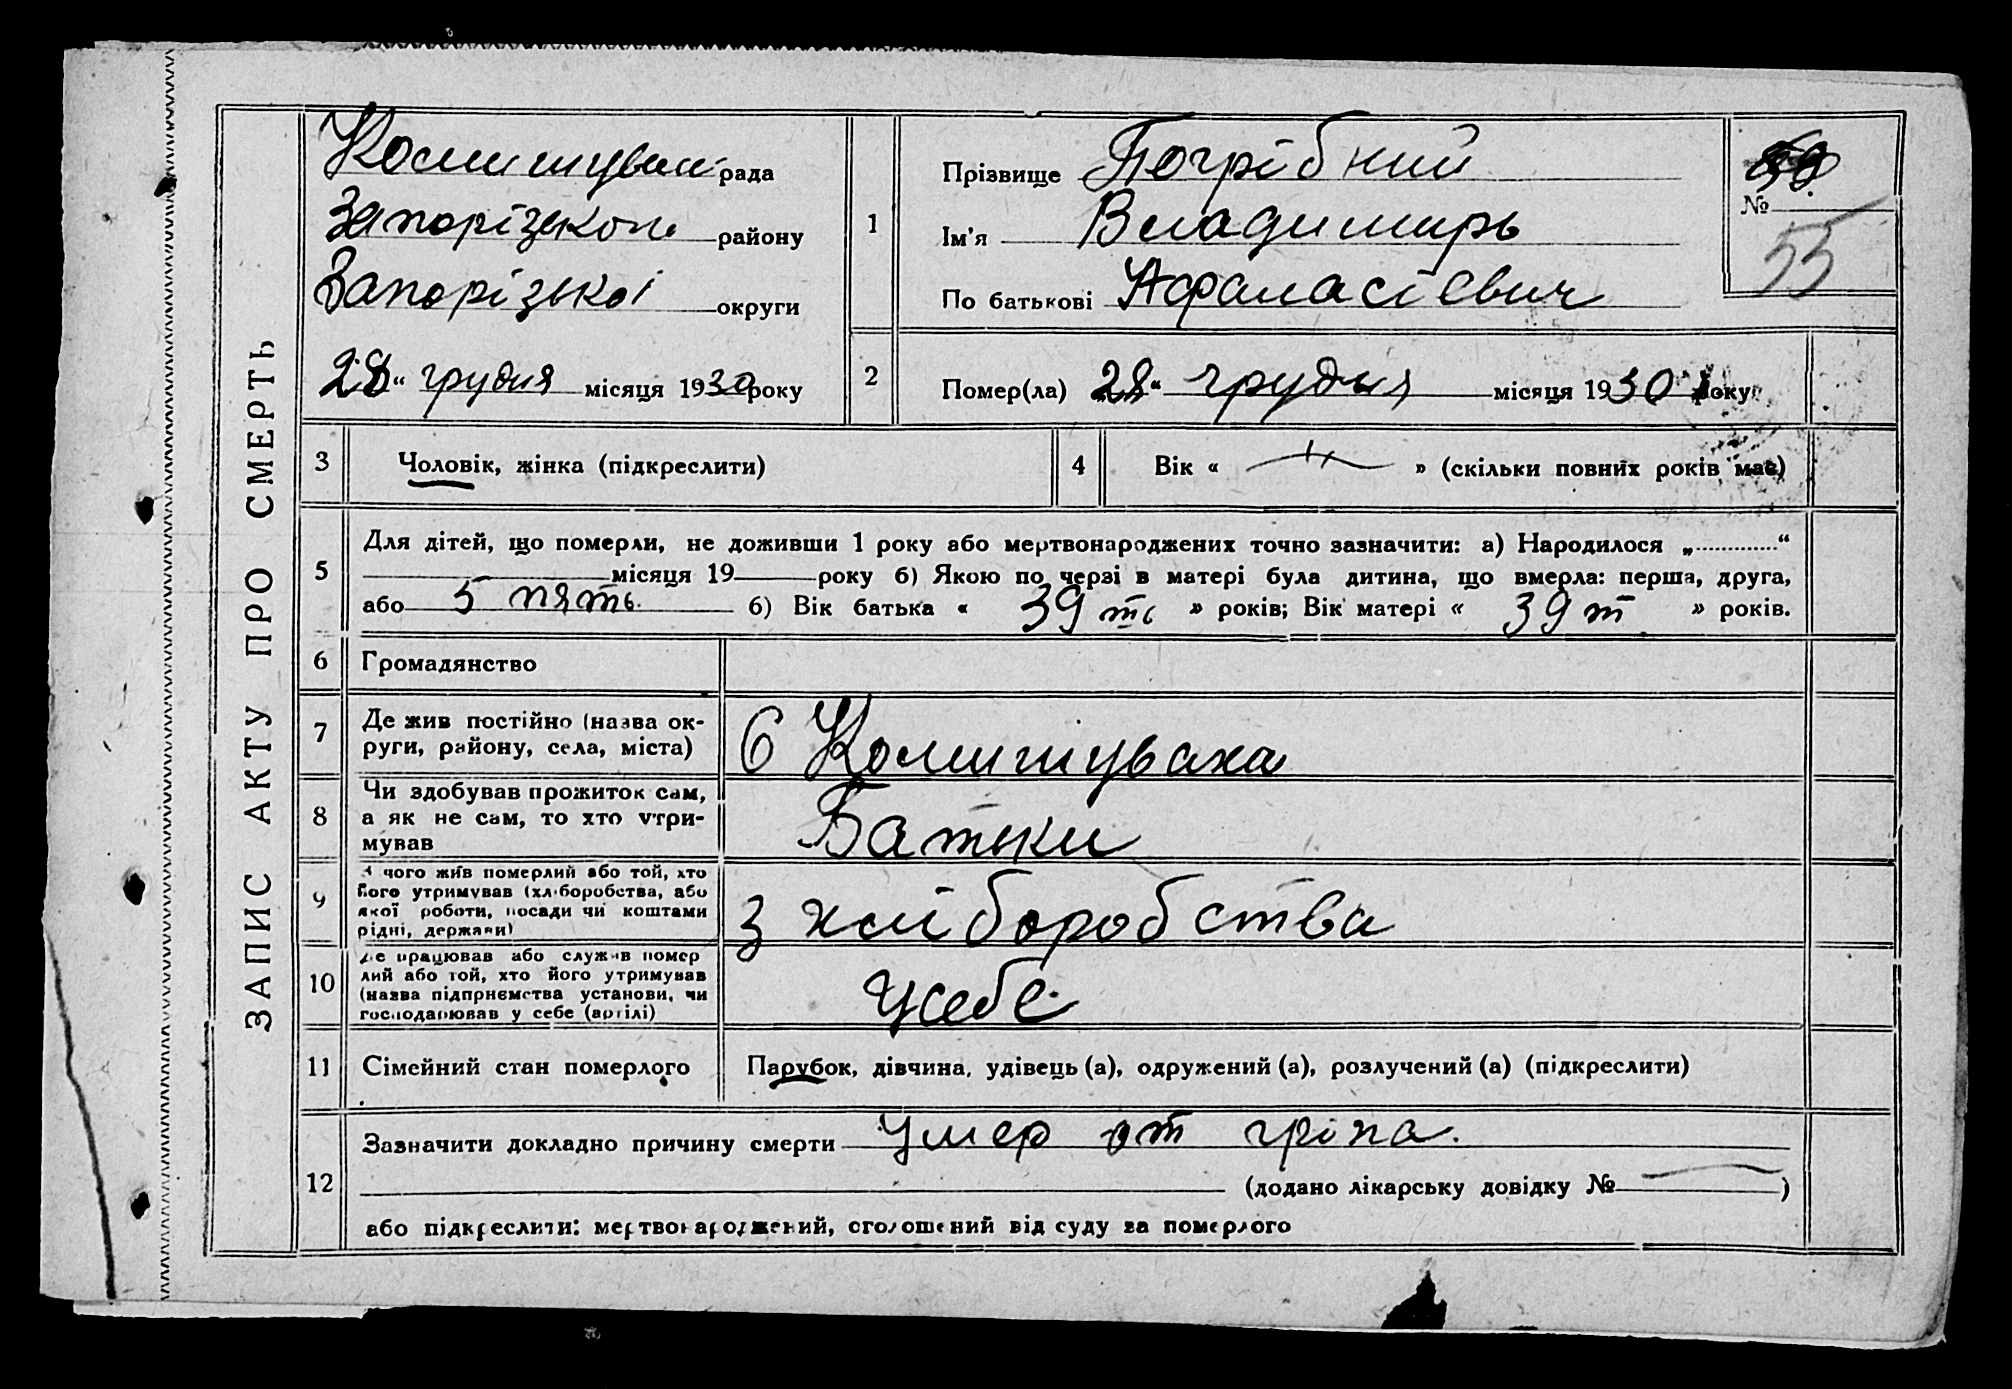 ЗАПИС АКТУ ПРО СМЕРТЬ
Комишуван рада
Запорізького району
Запорізької округи
28 „ грудня місяця 1930 року
1
Прізвище Погрібний
Ім'я Владимирь
По батькові Афанасієвич
№
55
2
Помер(ла) 28 „ грудня місяця 1930 року
3 Чоловік, жінка (підкреслити)
4 Вік « — » (скільки повних років має)
5 Для дітей, що померли, не доживши 1 року або мертвонароджених точно зазначити: а) Народилося „ “
місяця 19 року б) Якою по черзі в матері була дитина, що вмерла: перша, друга,
або 5 пять б) Вік батька « 39 ть » років; Вік матері « 39 т » років.
6 Громадянство
7 Де жив постійно (назва ок-
руги, району, села, міста)
С Комишуваха
8 Чи здобував прожиток сам,
а як не сам, то хто утри-
мував
Батьки
9 З чого жив померлий або той, хто
його утримував (хліборобства, або
якої роботи, посади чи коштами
рідні, держави)
з хліборобства
10 Де працював або служив помер
лий або той, хто його утримував
(назва підприємства установи, чи
господарював у себе (артілі)
усебе
11 Сімейний стан померлого
Парубок, дівчина, удівець (а), одружений (а), розлучений (а) (підкреслити)
12 Зазначити докладно причину смерти Умер от гріпа.
(додано лікарську довідку № — )
або підкреслити: мертвонароджений, оголошений від суду за померлого